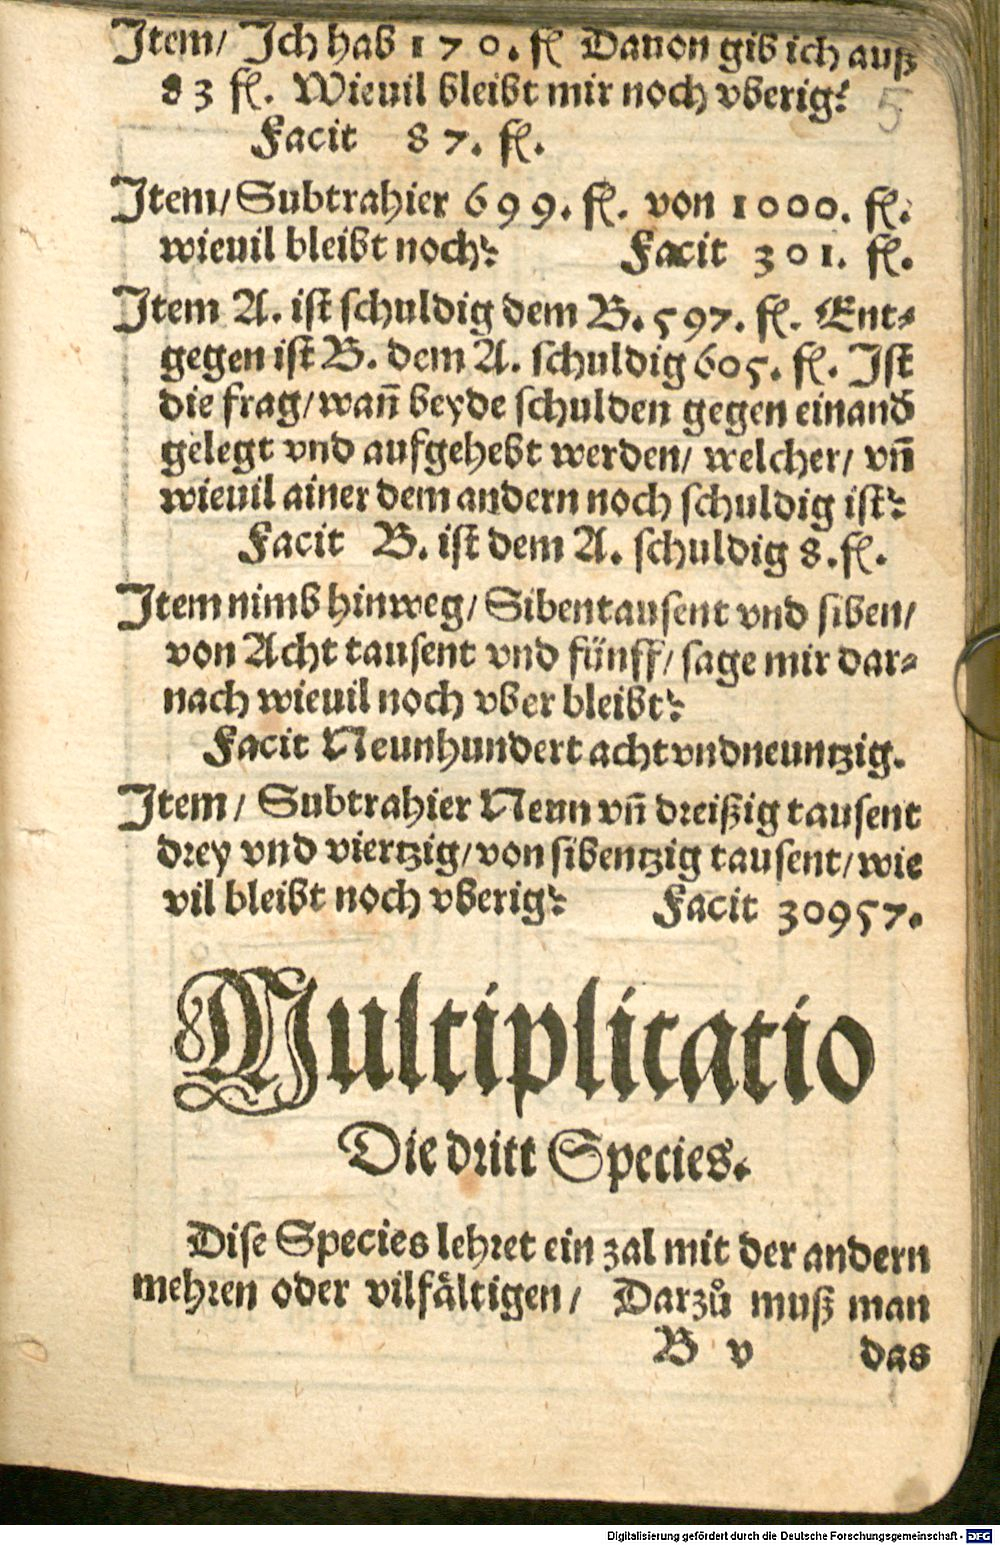 Item/ Ich hab 170. fl Dauon gib ich auß
83 fl. Wieuil bleibt mir noch vberig?
5
Facit 87. fl.
Item/ Subtrahier 699. fl. von 1000. fl.
wieuil bleibt noch? Facit 301. fl.
Item A. ist schuldig dem B. 597. fl. Ent-
gegen ist B. dem A. schuldig 605. fl. Ist
die frag/ wañ beyde schulden gegen einand̄
gelegt vnd aufgehebt werden/ welcher/ vñ
wieuil ainer dem andern noch schuldig ist?
Facit B. ist dem A. schuldig 8. fl.
Item nimb hinweg/ Sibentausent vnd siben/
von Acht tausent vnd fünff/ sage mir dar-
nach wieuil noch vber bleibt?
Facit Neunhundert achtvndneuntzig.
Item/ Subtrahier Neun vñ dreißig tausent
drey vnd viertzig/ von sibentzig tausent/ wie
vil bleibt noch vberig? Facit 30957.
Multiplicatio
Die dritt Species.
Dise Species lehret ein zal mit der andern
mehren oder vilfältigen/ Darzů muß man
B v das
Digitalisierung gefördert durch die Deutsche Forschungsgemeinschaft - DFG